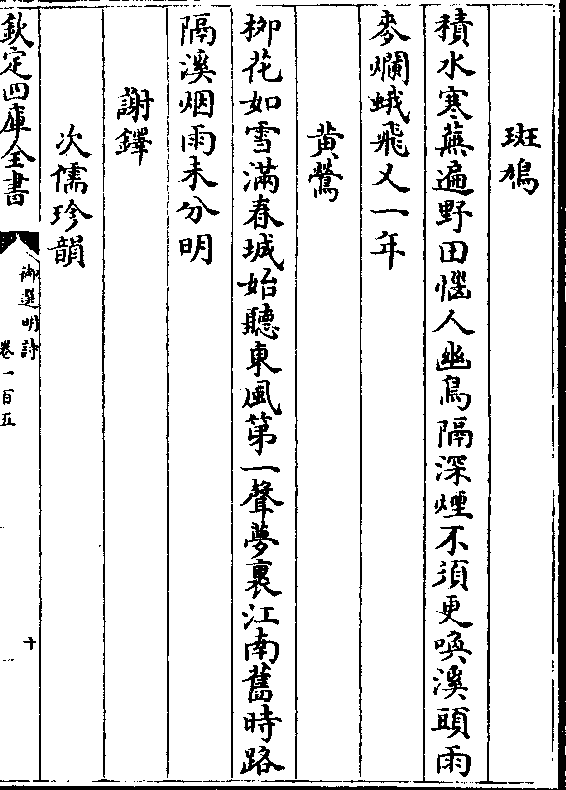 斑鳩
積水寒蕪遍野田惱人幽鳥隔深煙不須更喚溪頭雨
麥爛蛾飛又一年
黄鶯
栁花如雪滿春城始聽東風第一聲夢裏江南舊時路
隔溪烟雨未分明
謝鐸
次儒珍韻
欽定四庫全書
御選明詩
卷一百五
十